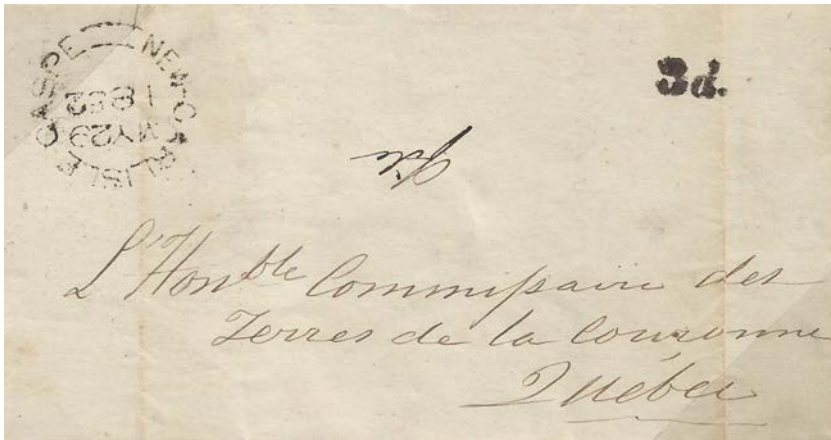 NEW-CARLISLE GASPE
MY 29
1852
3d.
L'Honble Commissaire des
Terres de la Couronne
Québec